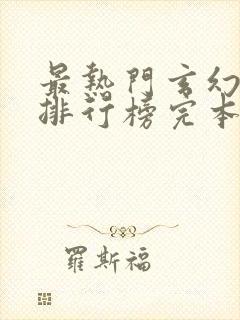 最熱門玄幻
排行榜完本
羅斯福